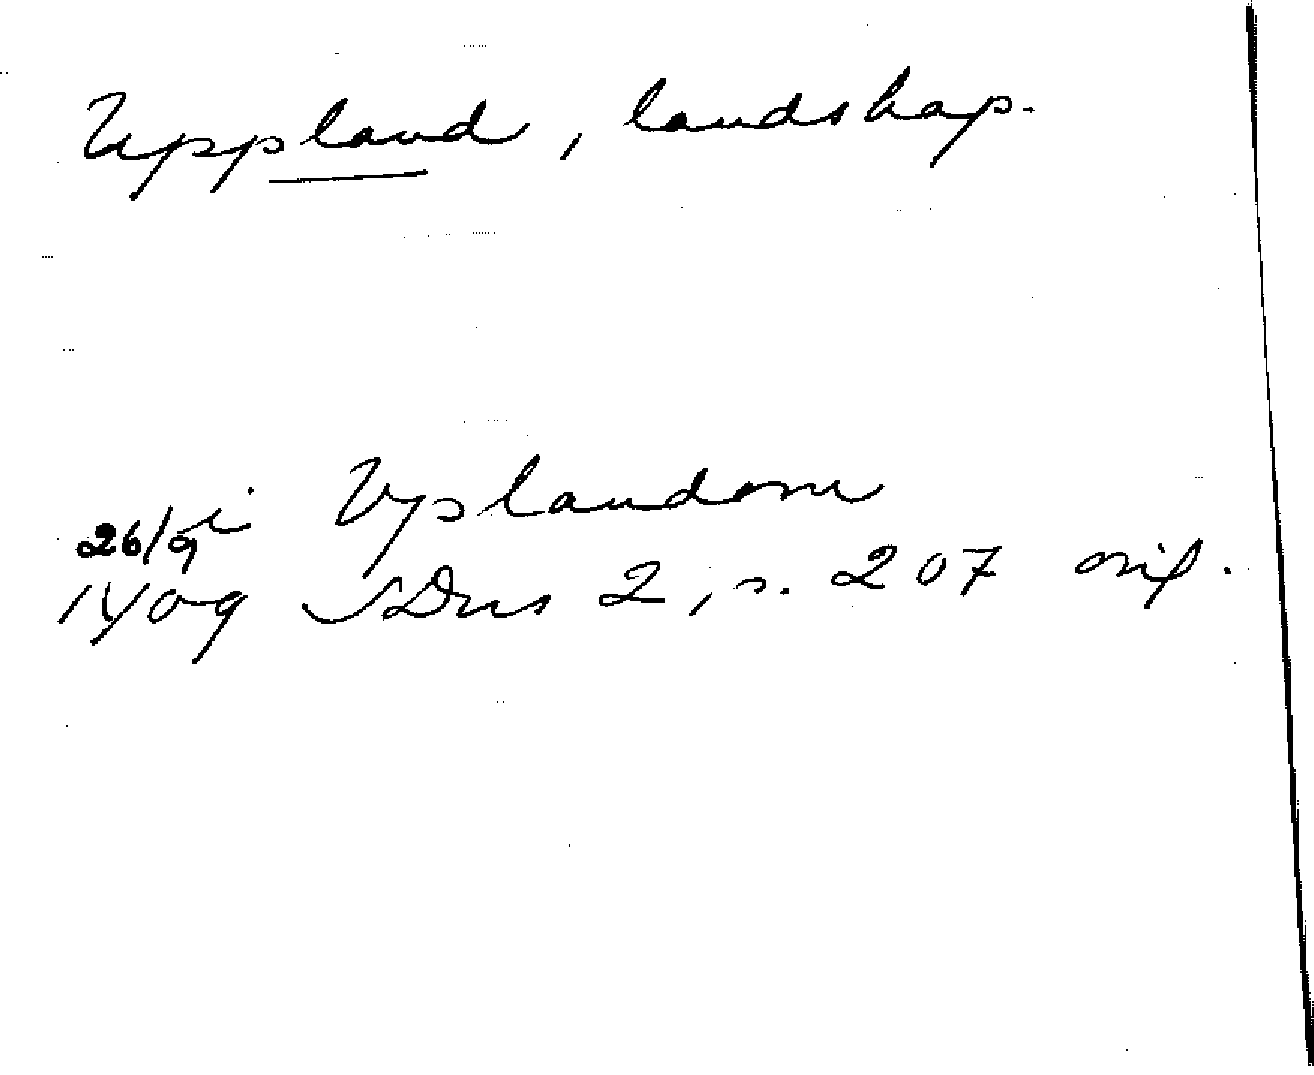 Uppland, landskap.
i Vplandom
26/9
1409 SDns 2, s. 207 orig.